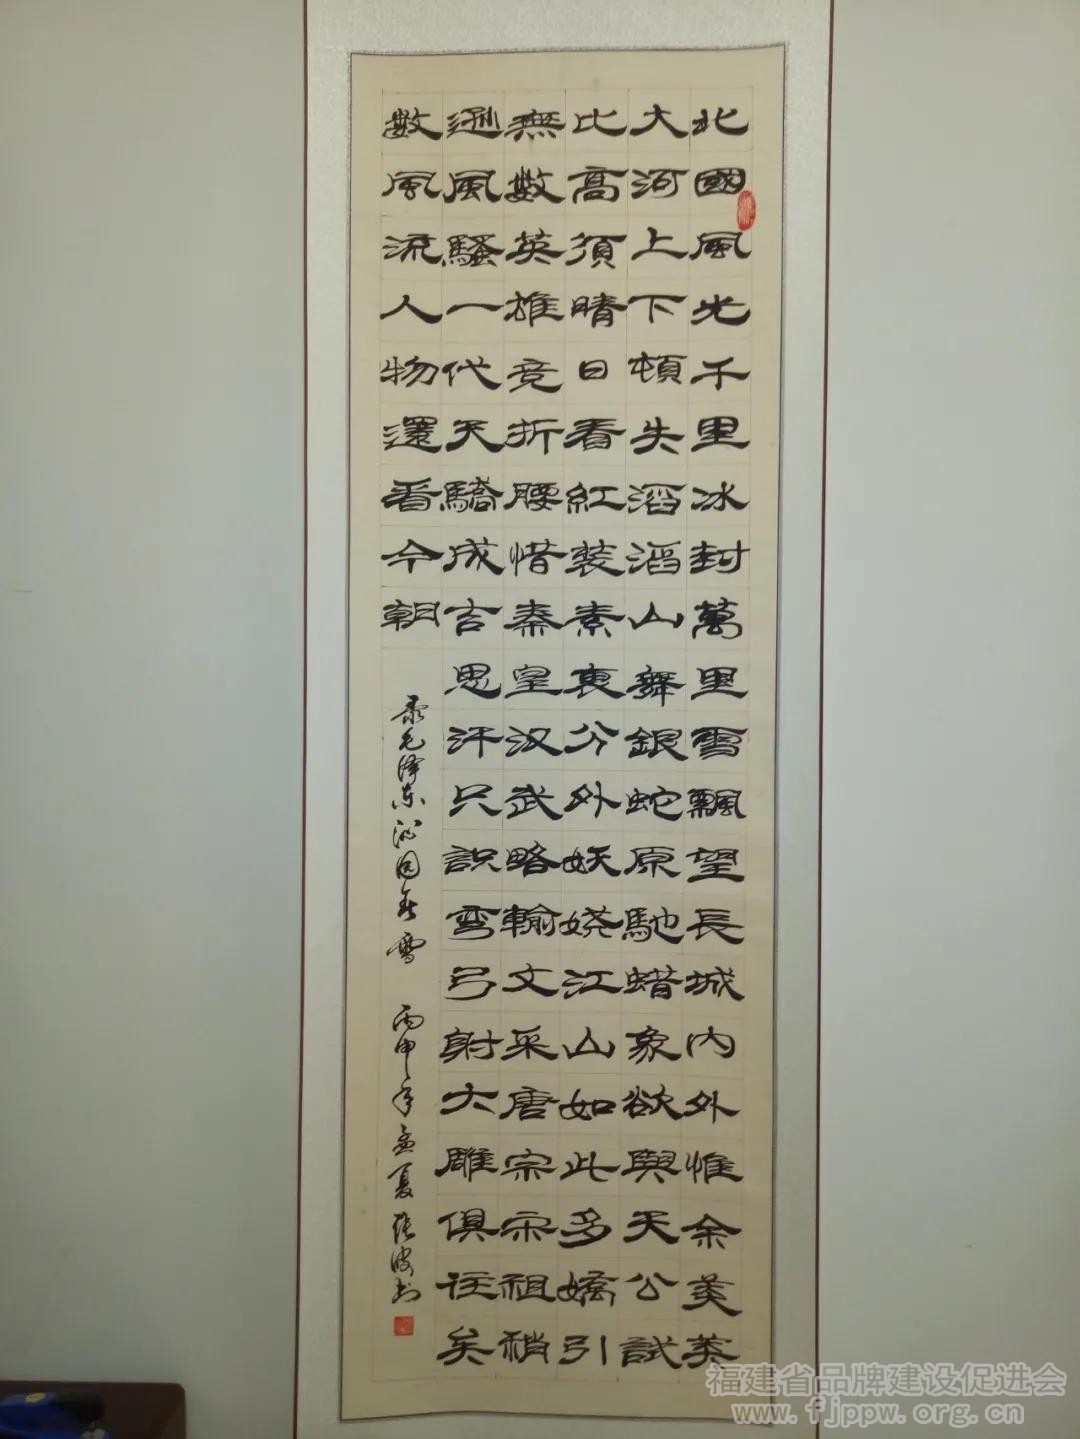 北國風光千里冰封萬里雪飄望長城内外惟余莽莽
大河上下頓失滔滔山舞銀蛇原馳蜡象欲與天公試
比高須晴日看紅裝素裹分外妖娆江山如此多嬌引
無數英雄竞折腰惜秦皇汉武略輸文采唐宗宋祖稍
遜風騷一代天驕成吉思汗只識弯弓射大雕俱往矣
數風流人物還看今朝
录毛泽东沁园春雪 丙申年孟夏张波书
福建省品牌建设促进会
www.fjppw.org.cn